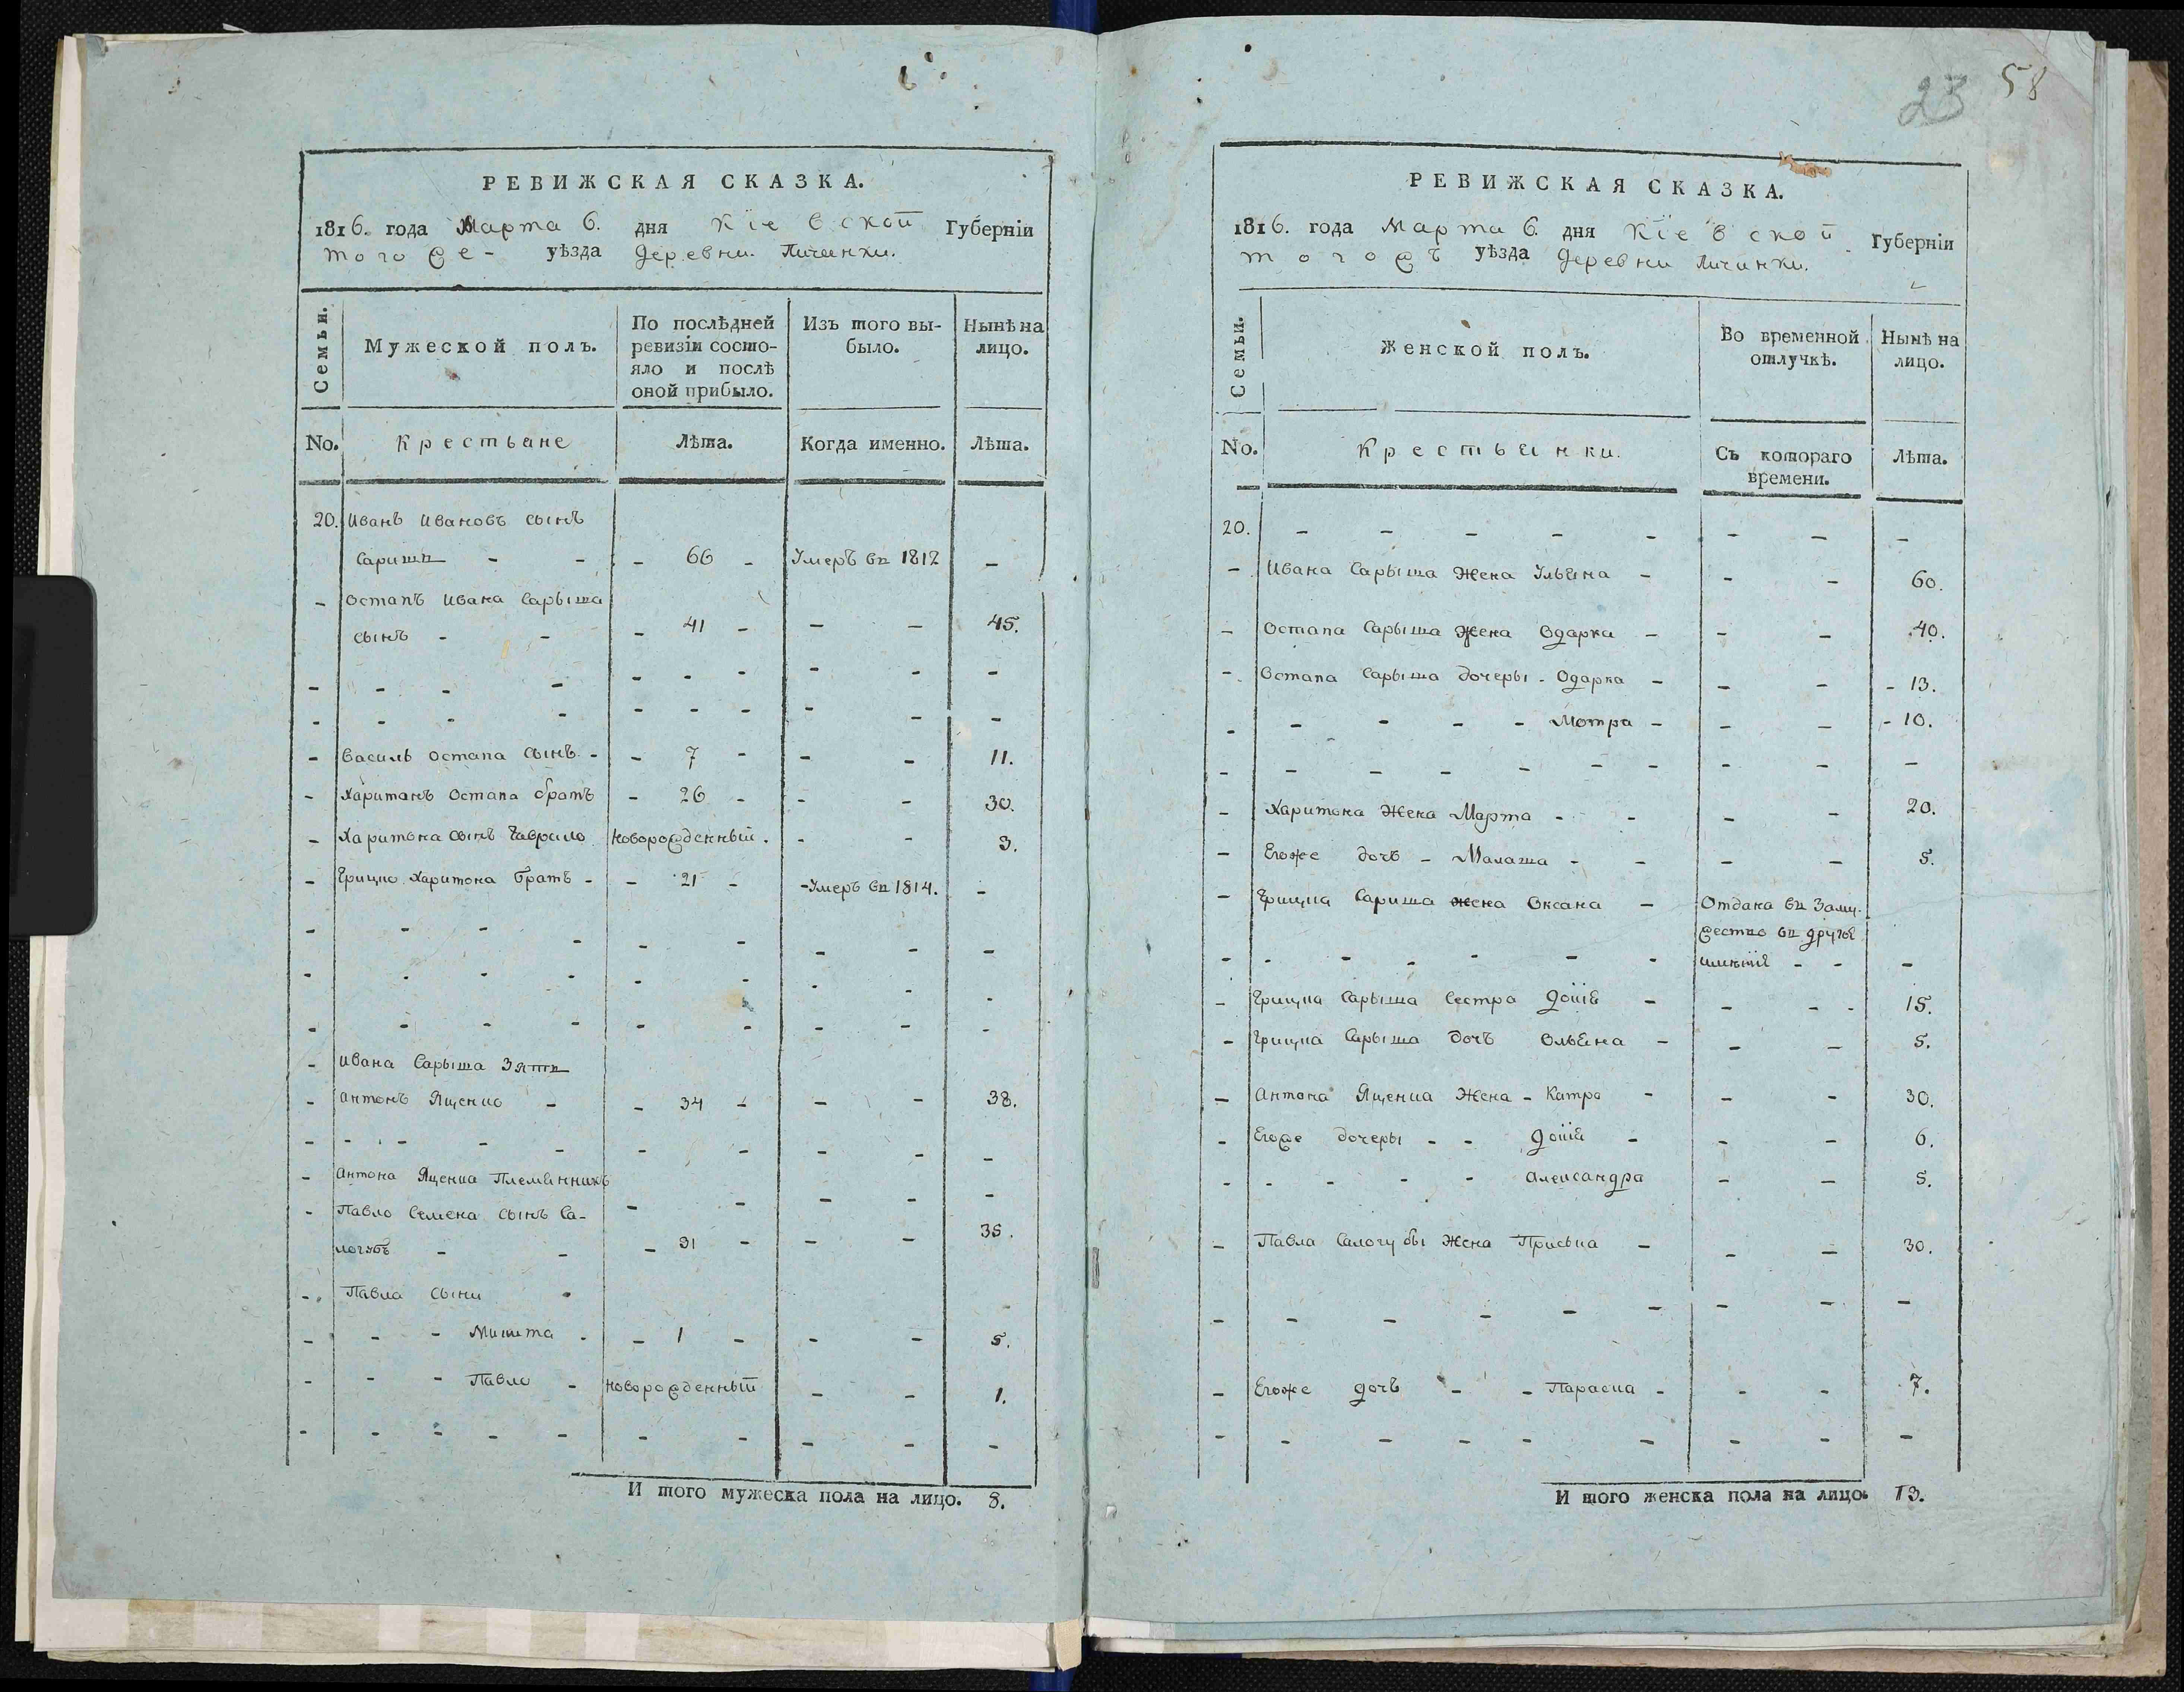 РЕВИЖСКАЯ СКАЗКА.
1816. года Марта 6. дня Кіевской Губерніи
того же - уѣзда деревни Личинки.
Семьи.
Мужеской полъ.
По послѣдней ревизіи состо-
яло и послѣ оной прибыло.
Изъ того вы-
было.
Нынѣ на лицо.
No. Крестьане Лѣта. Когда именно. Лѣта.
20. Иванъ Ивановъ сынъ
Саришъ - - - 66 - Умеръ въ 1812 -
- Остапъ Ивана Сарыша
сынъ - - - 41 - - - 45.
- - - - - - - - - -
- - - - - - - - - -
- Василь Остапа сынъ - - 7 - - - 11.
- Харитонъ Остапа братъ - 26 - - - 30.
- Харитона сынъ Гаврило Новорожденный. - - 3.
- Грицко Харитона братъ - - 21 - - Умеръ въ 1814. -
- - - - - - - - -
- - - - - - - - -
- - - - - - - - -
- Ивана Сарыша Зять
- Антонъ Яценко - - 34 - - - 38.
- - - - - - - - - -
- Антона Яценка Племянникъ
- Павло Семена сынъ Са- - - - - -
логубъ - - - 31 - - - 35.
- Павла сыни -
- - - Микита - - 1 - - - 5.
- - - Павло - Новорожденный - - 1.
- - - - - - - - - -
И того мужеска пола на лицо. 8.
23 58
РЕВИЖСКАЯ СКАЗКА.
1816. года Марта 6. дня Кіевской Губерніи
тогожъ уѣзда деревни Личинки.
Семьи.
Женской полъ.
Во временной отлучкѣ.
Нынѣ на лицо.
No. Крестьянки. Съ котораго времени. Лѣта.
20. - - - - - - - -
- Ивана Сарыша Жена Ульяна - - - 60.
- Остапа Сарыша Жена Одарка - - - 40.
- Остапа Сарыша дочеры - Одарка - - - - 13.
- - - - - Мотра - - - - 10.
- - - - - - - - - -
- Харитона Жена Марта - - - - 20.
- Егоже дочъ - Малаша - - - - 5.
- Грицка Сариша жена Оксана - Отдана въ Заму-
жество въ другое
- - - - - - - имѣніе - - -
- Грицка Сарыша Сестра Доція - - - - 15.
- Грицка Сарыша дочъ Ольяна - - - 5.
- Антона Яценка Жена - Катра - - - 30.
- Егоже дочеры - - Доція - - - 6.
- - - - - Александра - - 5.
- Павла Салогубы Жена Приська - - - 30.
- - - - - - - - -
- Егоже дочъ - - Параска - - - 7.
- - - - - - - - -
И того женска пола на лицо. 13.